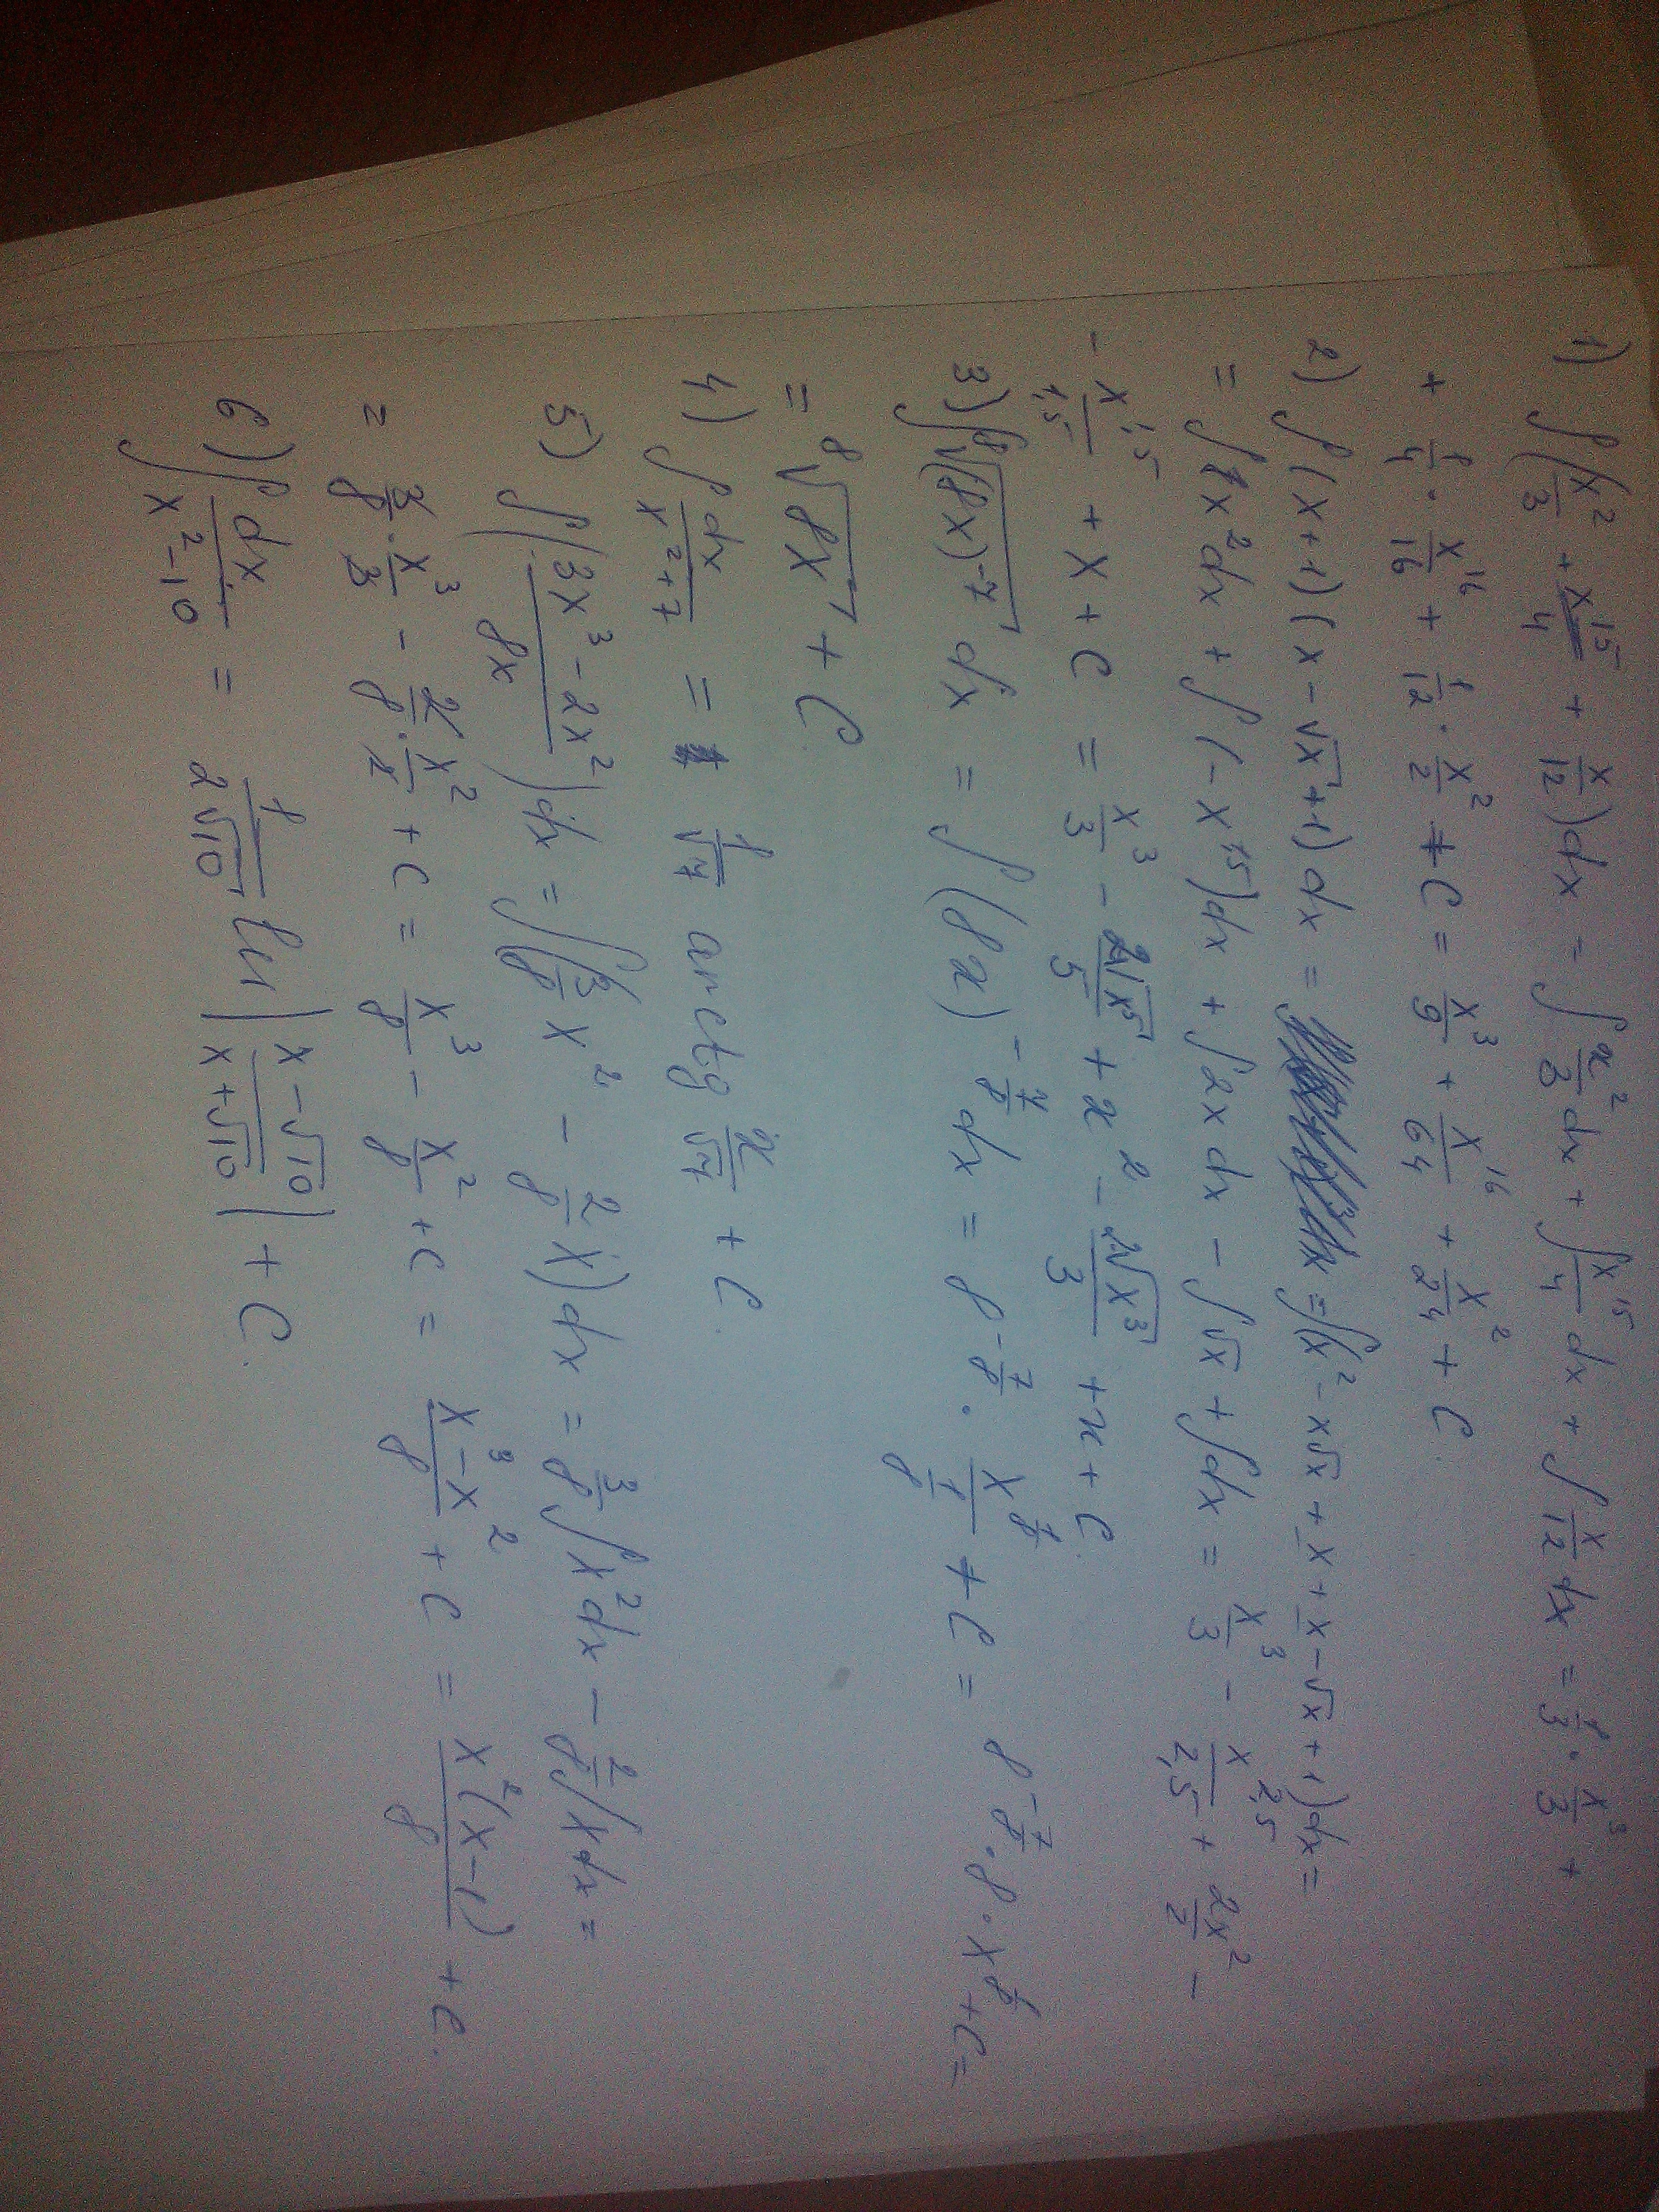 1) ∫(x²/3 + x¹⁵/4 + x/12)dx = ∫x²/3 dx + ∫x¹⁵/4 dx + ∫x/12 dx = 1/3 · x³/3 +
+ 1/4 · x¹⁶/16 + 1/12 · x²/2 + C = x³/9 + x¹⁶/64 + x²/24 + C
2) ∫(x+1)(x-√x+1)dx = =∫(x² - x√x + x + x - √x + 1)dx =
= ∫x²dx + ∫(-x^1,5)dx + ∫2x dx - ∫√x + ∫dx = x³/3 - x^2,5/2,5 + 2x²/2 -
- x^1,5/1,5 + x + C = x³/3 - 2√x⁵/5 + x² - 2√x³/3 + x + C
3) ∫⁸√(8x)⁻⁷ dx = ∫(8x)^-7/8 dx = 8^-7/8 · x^1/8/1/8 + C = 8^-7/8 · 8 · x^1/8 + C =
= ⁸√8x + C
4) ∫dx/x²+7 = 1/√7 arctg x/√7 + C.
5) ∫(3x³-2x²/8x)dx = ∫(3/8 x² - 2/8 x)dx = 3/8∫x²dx - 2/8∫xdx =
= 3/8 · x³/3 - 2/8 · x²/2 + C = x³/8 - x²/8 + C = x³-x²/8 + C = x²(x-1)/8 + C.
6) ∫dx/x²-10 = 1/2√10 ln|x-√10/x+√10| + C.